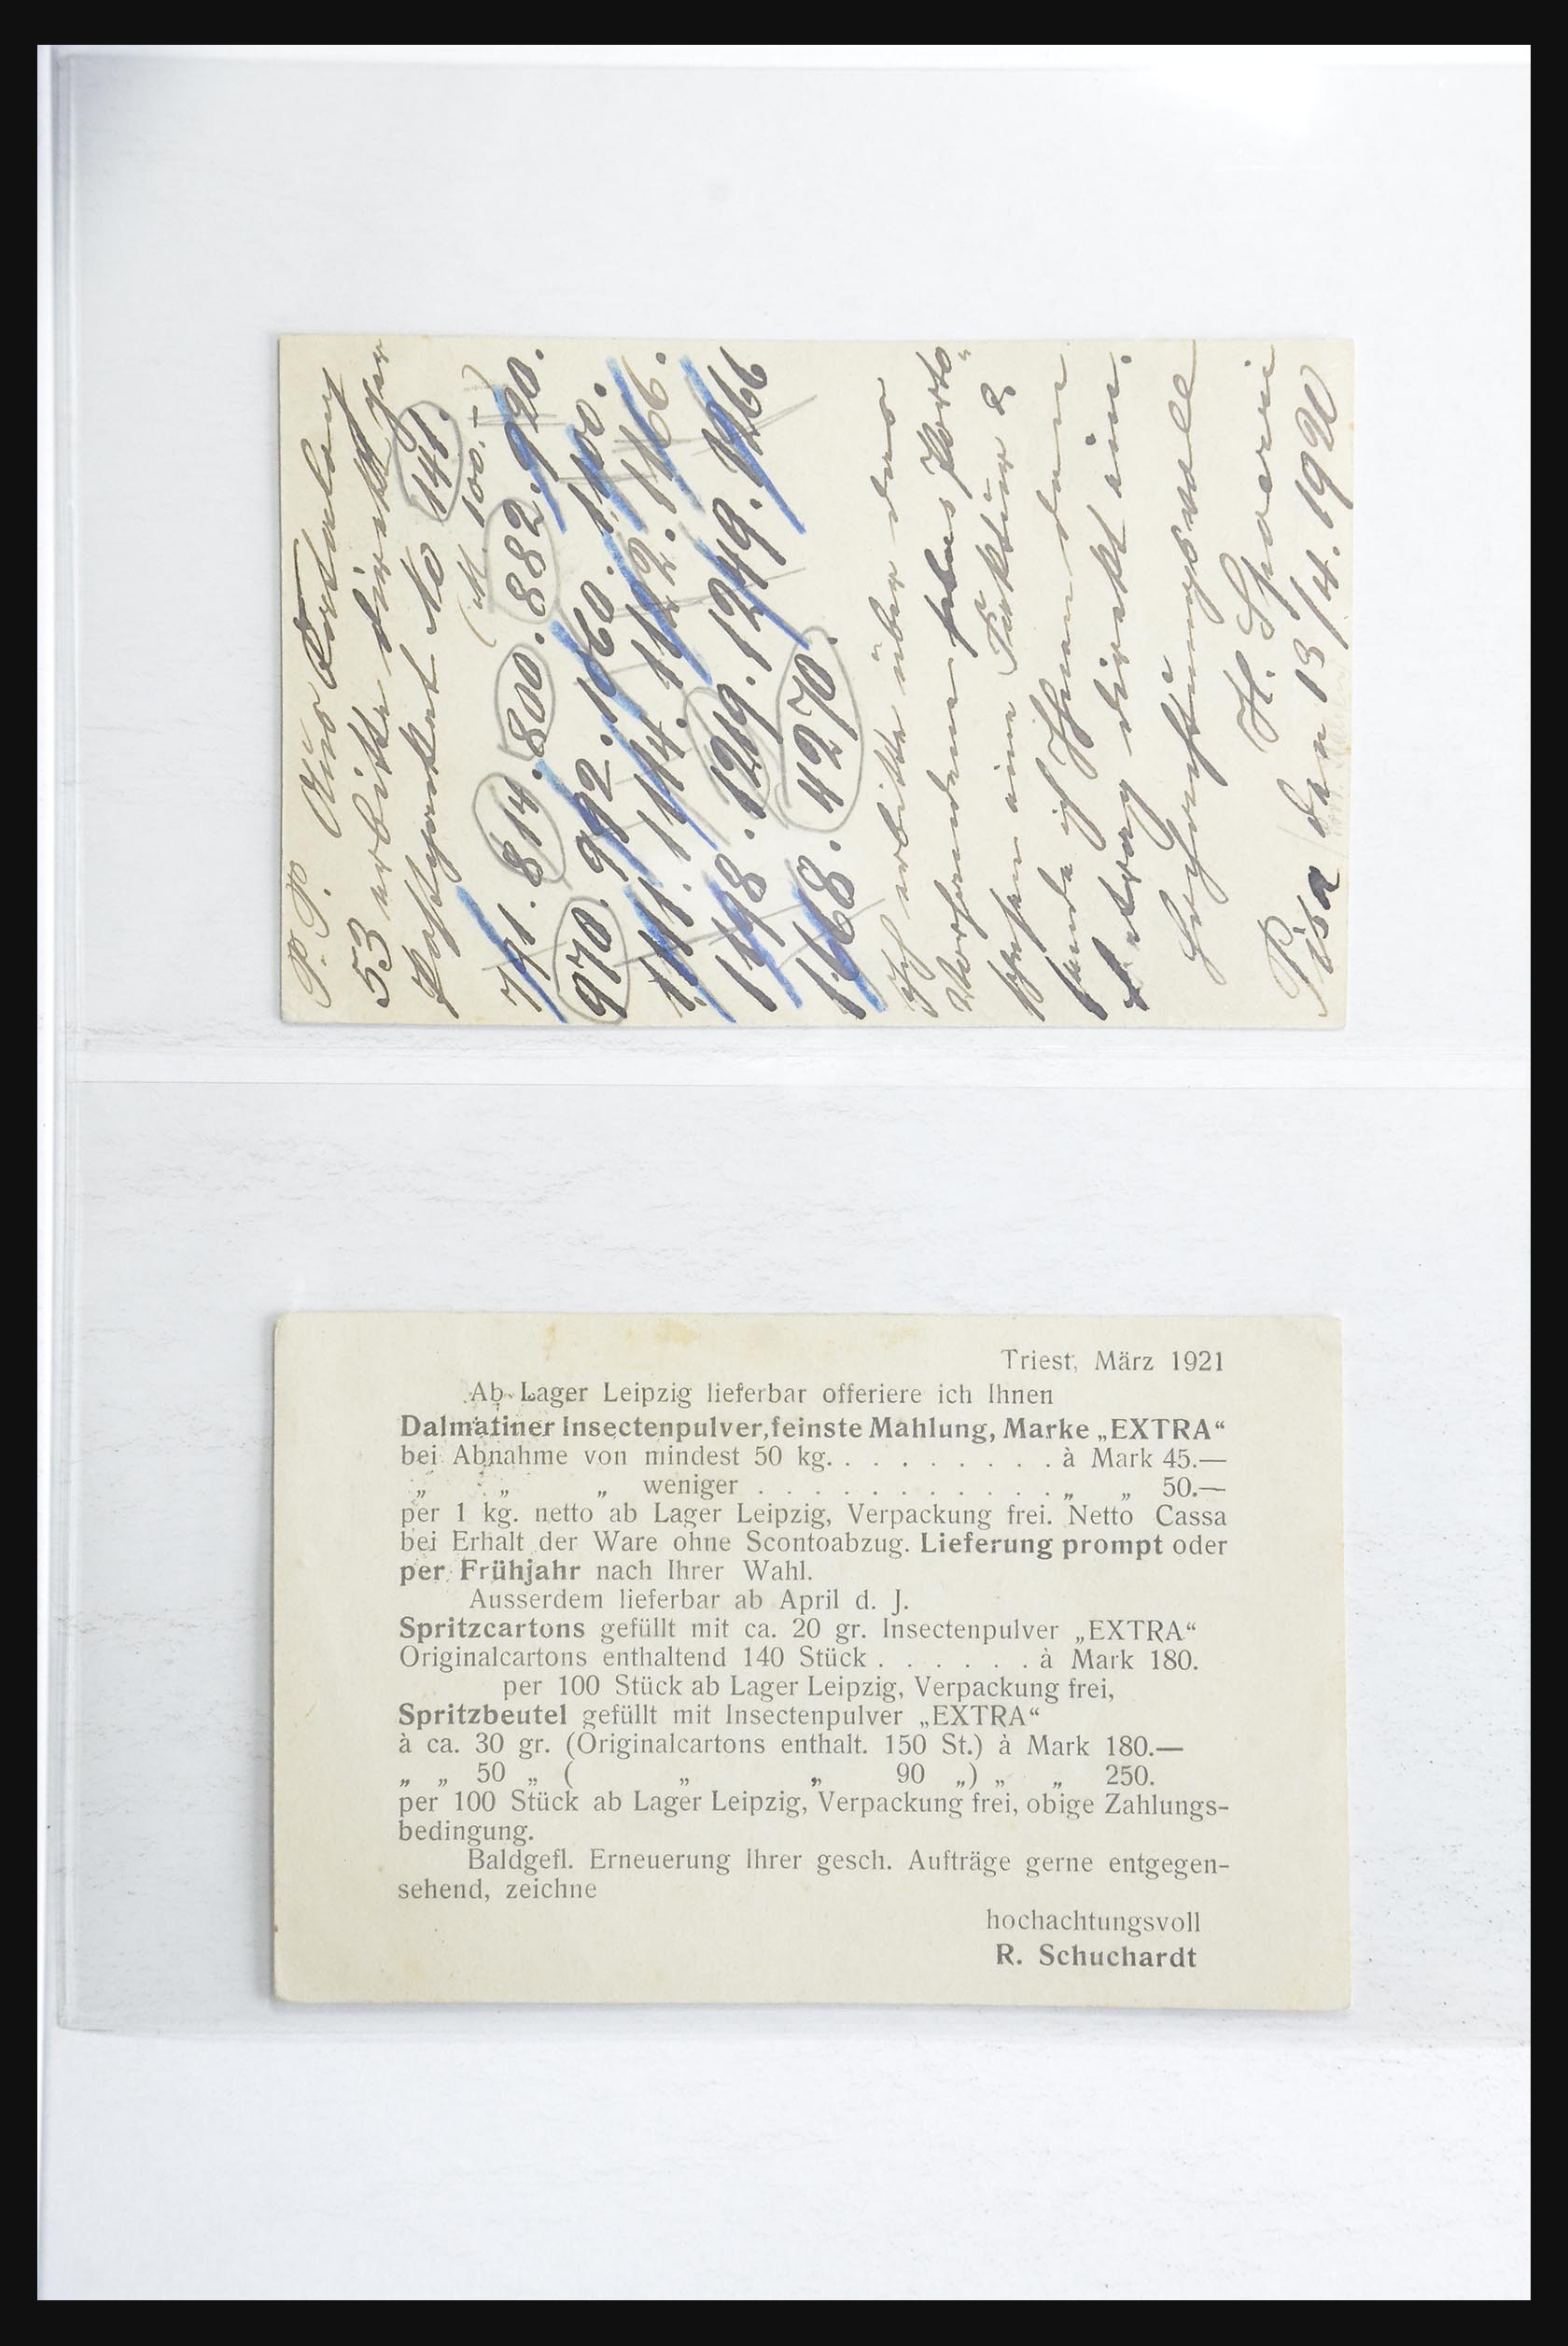 P. P. Aus Katalog
53 erbitte direkt per
Postpaket No 141.
(M. 100.-)
771. 814. 800. 882. 920.
970. 992. 1060. 1100.
1111. 1114. 1122. 1166.
1198. 1219. 1249. 1266
1968. 4270.
Ich erbitte über das
Vorhandene plus Porto
eine Faktur &
sende ich Ihnen den
Betrag direkt ein.
Hochachtungsvoll
H. Spaerri
Pisa den 13/4. 1920
Triest, März 1921
Ab Lager Leipzig lieferbar offeriere ich Ihnen
Dalmatiner Insectenpulver, feinste Mahlung, Marke „EXTRA“
bei Abnahme von mindest 50 kg. . . . . . . . . . à Mark 45.—
„ „ „ weniger . . . . . . . . . . . . . „ „ 50.—
per 1 kg. netto ab Lager Leipzig, Verpackung frei. Netto Cassa
bei Erhalt der Ware ohne Scontoabzug. Lieferung prompt oder
per Frühjahr nach Ihrer Wahl.
Ausserdem lieferbar ab April d. J.
Spritzcartons gefüllt mit ca. 20 gr. Insectenpulver „EXTRA“
Originalcartons enthaltend 140 Stück . . . . . . à Mark 180.
per 100 Stück ab Lager Leipzig, Verpackung frei,
Spritzbeutel gefüllt mit Insectenpulver „EXTRA“
à ca. 30 gr. (Originalcartons enthalt. 150 St.) à Mark 180.—
„ „ 50 „ ( „ „ 90 „) „ „ 250.
per 100 Stück ab Lager Leipzig, Verpackung frei, obige Zahlungs-
bedingung.
Baldgefl. Erneuerung Ihrer gesch. Aufträge gerne entgegen-
sehend, zeichne
hochachtungsvoll
R. Schuchardt